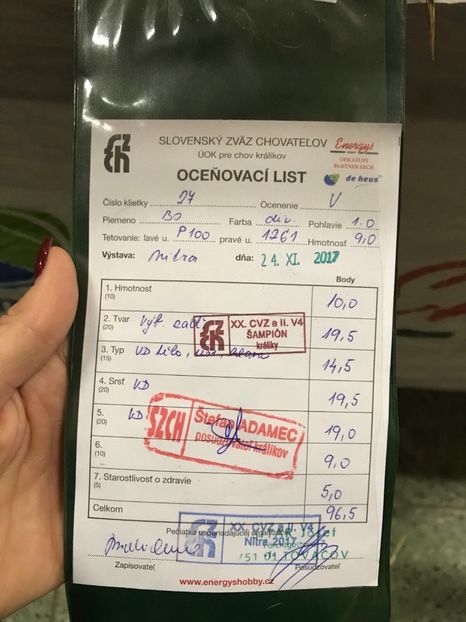 SLOVENSKÝ ZVÄZ CHOVATEĽOV
ÚOK pre chov králikov
OCEŇOVACÍ LIST
Energys
OFICIÁLNY
PARTNER SZCH
de heus
Číslo klietky 57 Ocenenie V
Plemeno BO Farba div. Pohlavie 1.0
Tetovanie: ľavé u. P100 pravé u. 1261 Hmotnosť 9,0
Výstava: Nitra dňa: 24. XI. 2017
Body
1. Hmotnosť (10) 10,0
2. Tvar (20) 19,5
XX. CVZ a II. V4
ŠAMPIÓN
králiky
3. Typ (15) VD 14,5
4. Srsť (20) VD 19,5
5. (20) VD 19,0
SZCH
Štefan ADAMEC
posudzovateľ králikov
6. (10) 9,0
7. Starostlivosť o zdravie (5) 5,0
Celkom 96,5
Pečiatka usporiadajúcej organizácie
XX. CVZ a II. V4
Nitra 2017
Jozef
751 01 TOVAČOV
Zapisovateľ Posudzovateľ
www.energyshobby.cz